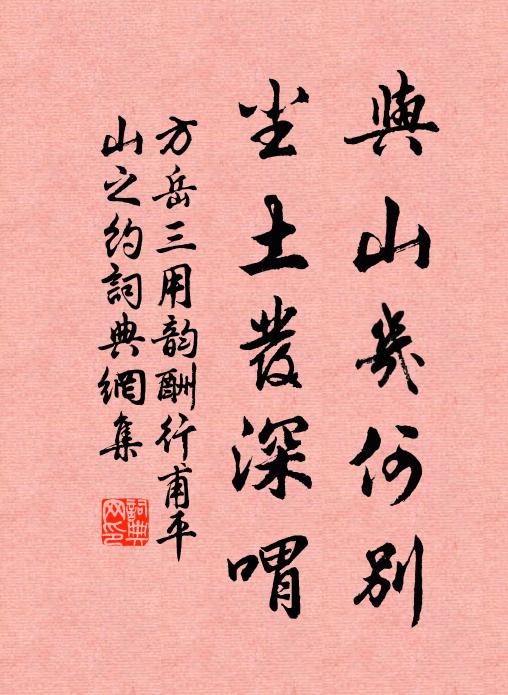 與山幾何別
坐土發深喟
方岳三用韵酬行甫平
山之約詞典網集
詞典网印